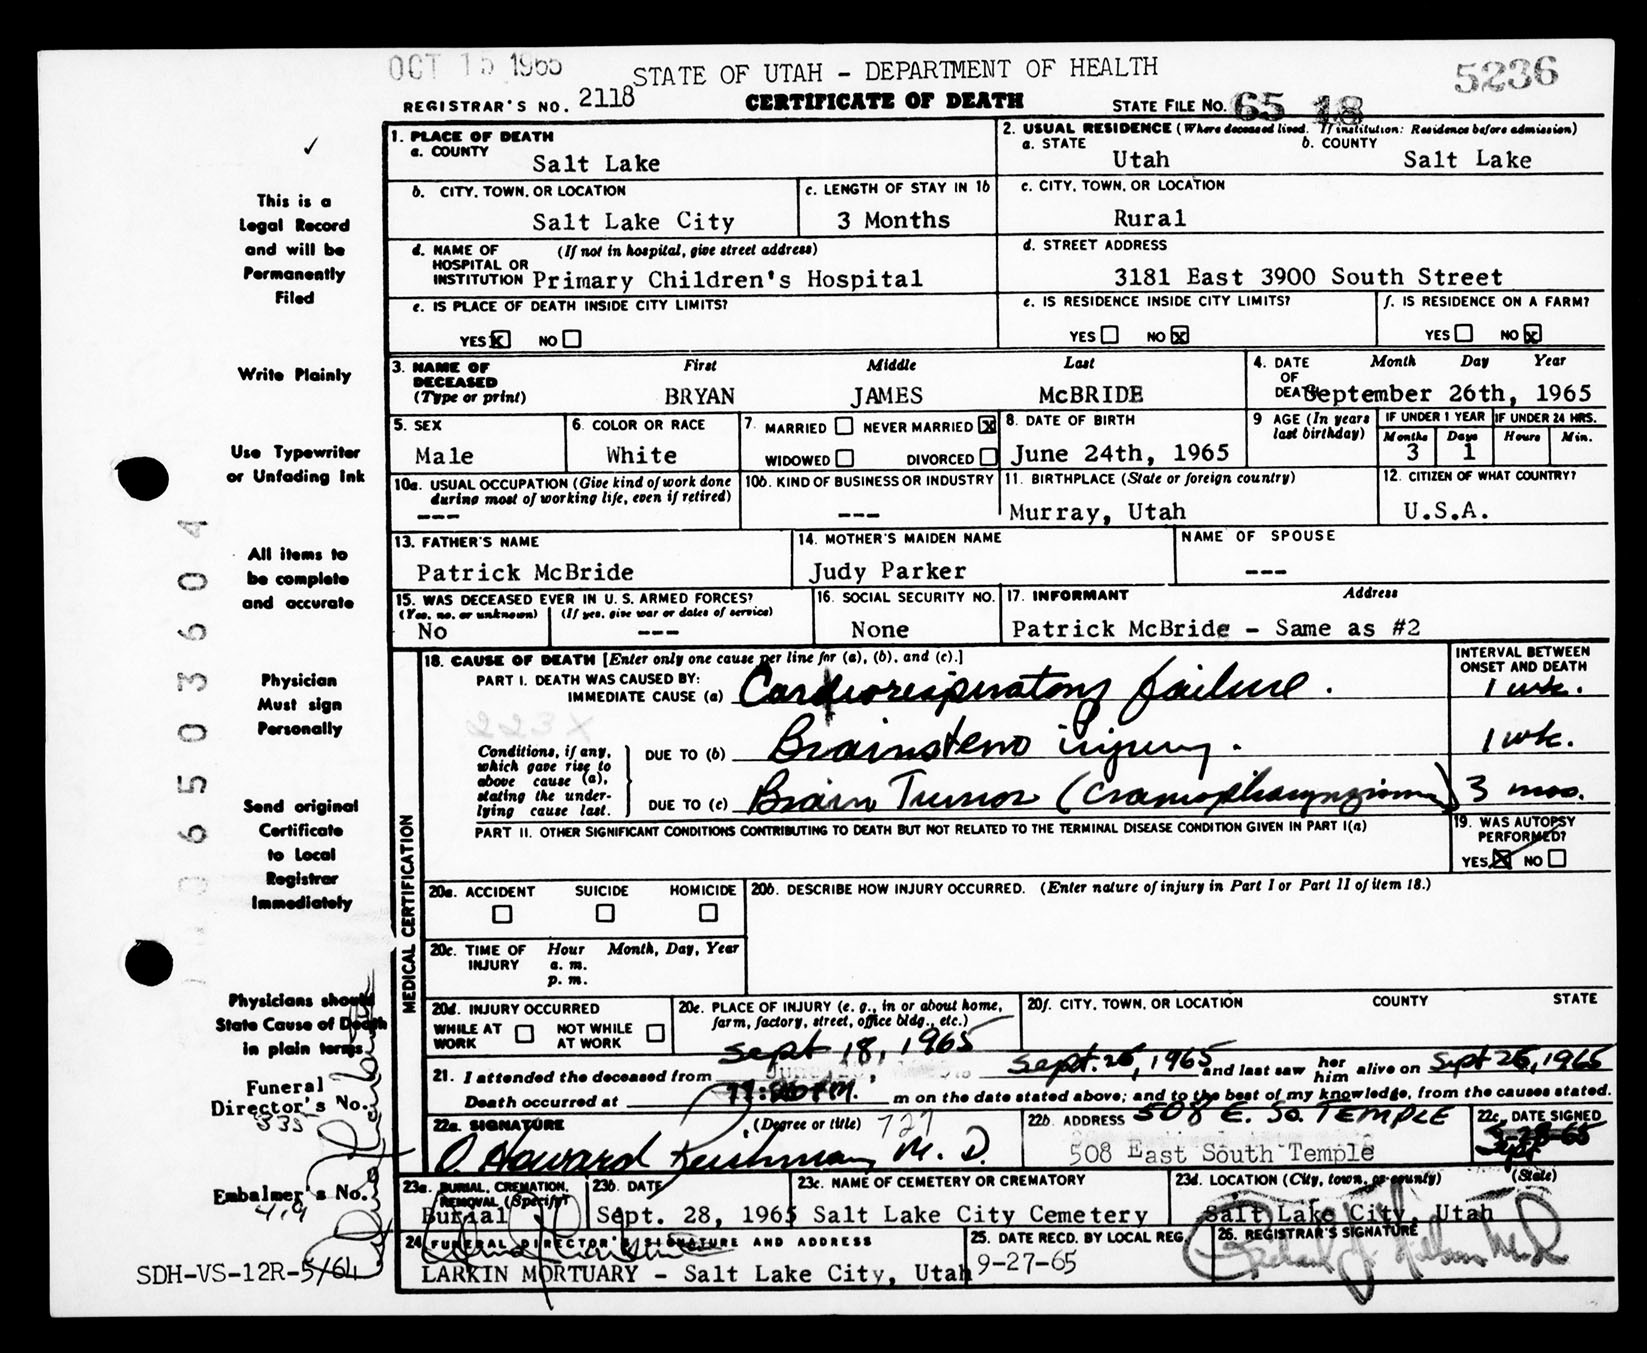 OCT 15 1965
STATE OF UTAH - DEPARTMENT OF HEALTH
5236
REGISTRAR'S NO. 2118
CERTIFICATE OF DEATH
STATE FILE NO. 65 18
1. PLACE OF DEATH
a. COUNTY
Salt Lake
2. USUAL RESIDENCE (Where deceased lived. If institution: Residence before admission)
a. STATE
Utah
b. COUNTY
Salt Lake
b. CITY, TOWN, OR LOCATION
Salt Lake City
c. LENGTH OF STAY IN 1b
3 Months
c. CITY, TOWN, OR LOCATION
Rural
d. NAME OF HOSPITAL OR INSTITUTION (If not in hospital, give street address)
Primary Children's Hospital
d. STREET ADDRESS
3181 East 3900 South Street
e. IS PLACE OF DEATH INSIDE CITY LIMITS?
YES X NO
e. IS RESIDENCE INSIDE CITY LIMITS?
YES NO X
f. IS RESIDENCE ON A FARM?
YES NO X
3. NAME OF DECEASED (Type or print)
First Middle Last
BRYAN JAMES McBRIDE
4. DATE OF DEATH
Month Day Year
September 26th, 1965
5. SEX
Male
6. COLOR OR RACE
White
7. MARRIED NEVER MARRIED X
WIDOWED DIVORCED
8. DATE OF BIRTH
June 24th, 1965
9 AGE (In years last birthday)
IF UNDER 1 YEAR
Months Days
3 1
IF UNDER 24 HRS.
Hours Min.
10a. USUAL OCCUPATION (Give kind of work done during most of working life, even if retired)
---
10b. KIND OF BUSINESS OR INDUSTRY
---
11. BIRTHPLACE (State or foreign country)
Murray, Utah
12. CITIZEN OF WHAT COUNTRY?
U.S.A.
13. FATHER'S NAME
Patrick McBride
14. MOTHER'S MAIDEN NAME
Judy Parker
NAME OF SPOUSE
---
15. WAS DECEASED EVER IN U. S. ARMED FORCES?
(Yes, no, or unknown) (If yes, give war or dates of service)
No ---
16. SOCIAL SECURITY NO.
None
17. INFORMANT Address
Patrick McBride - Same as #2
MEDICAL CERTIFICATION
18. CAUSE OF DEATH [Enter only one cause per line for (a), (b), and (c).]
INTERVAL BETWEEN ONSET AND DEATH
PART I. DEATH WAS CAUSED BY:
IMMEDIATE CAUSE (a) Cardiorespiratory failure. 1 wk.
Conditions, if any, which gave rise to above cause (a), stating the underlying cause last.
DUE TO (b) Brainstem injury. 1 wk.
DUE TO (c) Brain Tumor (Craniopharyngioma) 3 mos.
PART II. OTHER SIGNIFICANT CONDITIONS CONTRIBUTING TO DEATH BUT NOT RELATED TO THE TERMINAL DISEASE CONDITION GIVEN IN PART I(a)
19. WAS AUTOPSY PERFORMED?
YES X NO
20a. ACCIDENT SUICIDE HOMICIDE
20b. DESCRIBE HOW INJURY OCCURRED. (Enter nature of injury in Part I or Part II of item 18.)
20c. TIME OF INJURY Hour Month, Day, Year
a. m.
p. m.
20d. INJURY OCCURRED
WHILE AT WORK NOT WHILE AT WORK
20e. PLACE OF INJURY (e. g., in or about home, farm, factory, street, office bldg., etc.)
20f. CITY, TOWN, OR LOCATION COUNTY STATE
21. I attended the deceased from Sept 18, 1965 Sept. 26, 1965 and last saw her him alive on Sept 26, 1965
Death occurred at m on the date stated above; and to the best of my knowledge, from the causes stated.
22a. SIGNATURE (Degree or title) 727
M. D.
22b. ADDRESS 508 E. SO. TEMPLE
508 East South Temple
22c. DATE SIGNED
23a. BURIAL, CREMATION, REMOVAL (Specify)
Burial
23b. DATE
Sept. 28, 1965
23c. NAME OF CEMETERY OR CREMATORY
Salt Lake City Cemetery
23d. LOCATION (City, town, or county) (State)
Salt Lake City, Utah
24. FUNERAL DIRECTOR'S SIGNATURE AND ADDRESS
LARKIN MORTUARY - Salt Lake City, Utah
25. DATE RECD. BY LOCAL REG.
9-27-65
26. REGISTRAR'S SIGNATURE
This is a
Legal Record
and will be
Permanently
Filed
Write Plainly
Use Typewriter
or Unfading Ink
All items to
be complete
and accurate
Physician
Must sign
Personally
Send original
Certificate
to Local
Registrar
Immediately
Physicians should
State Cause of Death
in plain terms.
Funeral
Director's No.
Embalmer's No.
SDH-VS-12R-5/64